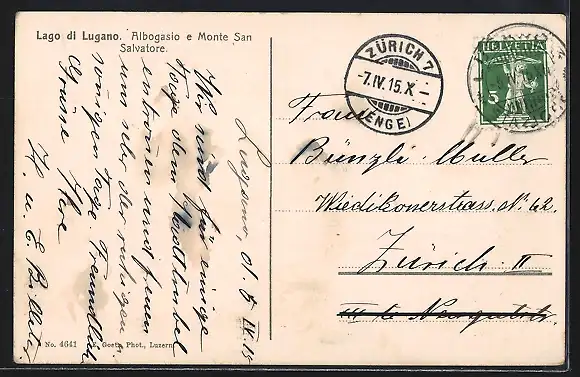 Lago di Lugano. Albogasio e Monte San
Salvatore.
Lugano, d. 5 IV. 15
Wir sind für einige
Tage dem Stadttrubel
entronnen und freuen
uns über der ruhigen
sonnigen Tage. Freundliche
Grüsse Ihre
H. u. E.
No. 4641
E. Goetz, Phot., Luzern
ZÜRICH 7
-7.IV.15.X-
(ENGE)
HELVETIA
5
Frau
Bünzli-Müller
Wiedikonerstrass. No 62.
Zürich II
III